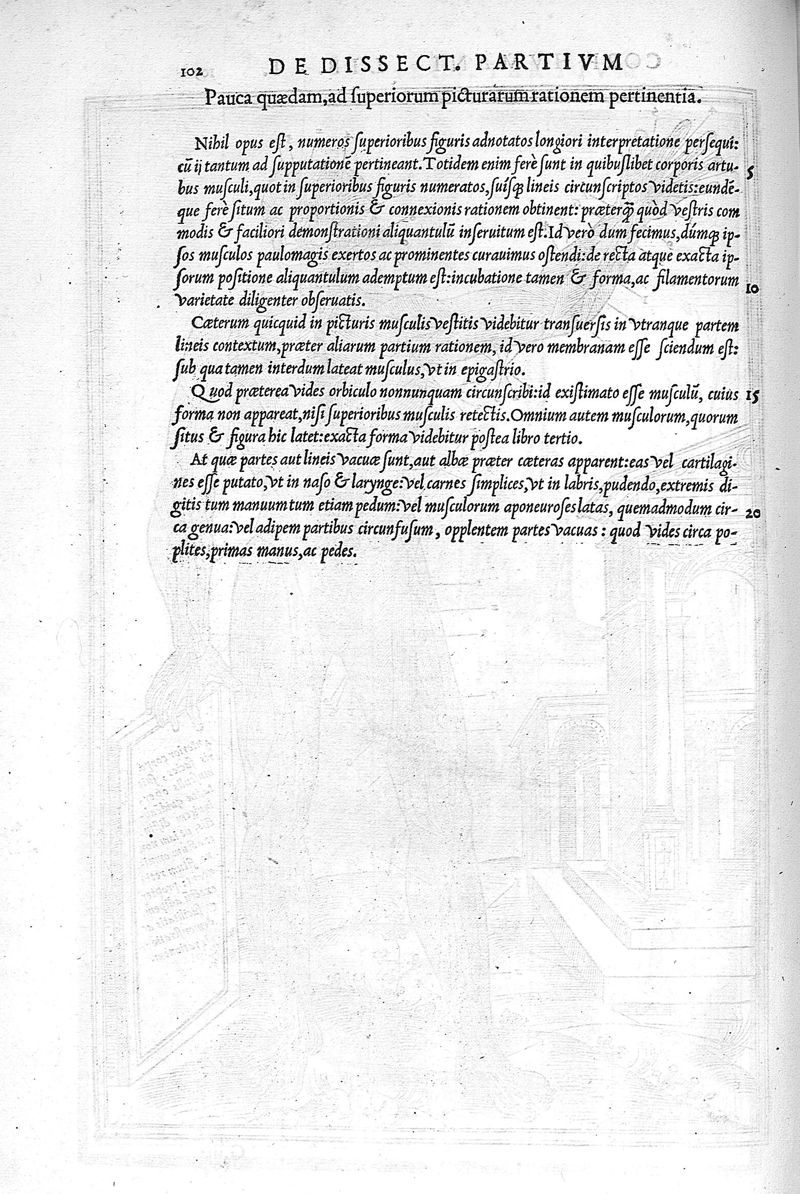 102 DE DISSECT. PARTIVM
Pauca quædam, ad superiorum picturarum rationem pertinentia.
Nihil opus est, numeros superioribus figuris adnotatos longiori interpretatione persequi:
cũ ij tantum ad supputationẽ pertineant. Totidem enim ferè sunt in quibuslibet corporis artu- 5
bus musculi, quot in superioribus figuris numeratos, suísq; lineis circunscriptos videtis: eundẽ-
que ferè situm ac proportionis & connexionis rationem obtinent: præterq̃ quòd vestris com
modis & faciliori demonstrationi aliquantulũ inseruitum est. Id verò dum fecimus, dúmq; ip-
sos musculos paulomagis exertos ac prominentes curauimus ostendi: de recta atque exacta ip-
sorum positione aliquantulum ademptum est: incubatione tamen & forma, ac filamentorum 10
varietate diligenter obseruatis.
Cæterum quicquid in picturis musculis vestitis videbitur transuersis in vtranque partem
lineis contextum, præter aliarum partium rationem, id vero membranam esse sciendum est:
sub qua tamen interdum lateat musculus, vt in epigastrio.
Quod præterea vides orbiculo nonnunquam circunscribi: id existimato esse musculũ, cuius 15
forma non appareat, nisi superioribus musculis retectis. Omnium autem musculorum, quorum
situs & figura hic latet: exacta forma videbitur postea libro tertio.
At quæ partes aut lineis vacuæ sunt, aut albæ præter cæteras apparent: eas vel cartilagi-
nes esse putato, vt in naso & larynge: vel carnes simplices, vt in labris, pudendo, extremis di-
gitis tum manuum tum etiam pedum: vel musculorum aponeuroses latas, quemadmodum cir- 20
ca genua: vel adipem partibus circunfusum, opplentem partes vacuas: quod vides circa po-
plites, primas manus, ac pedes.